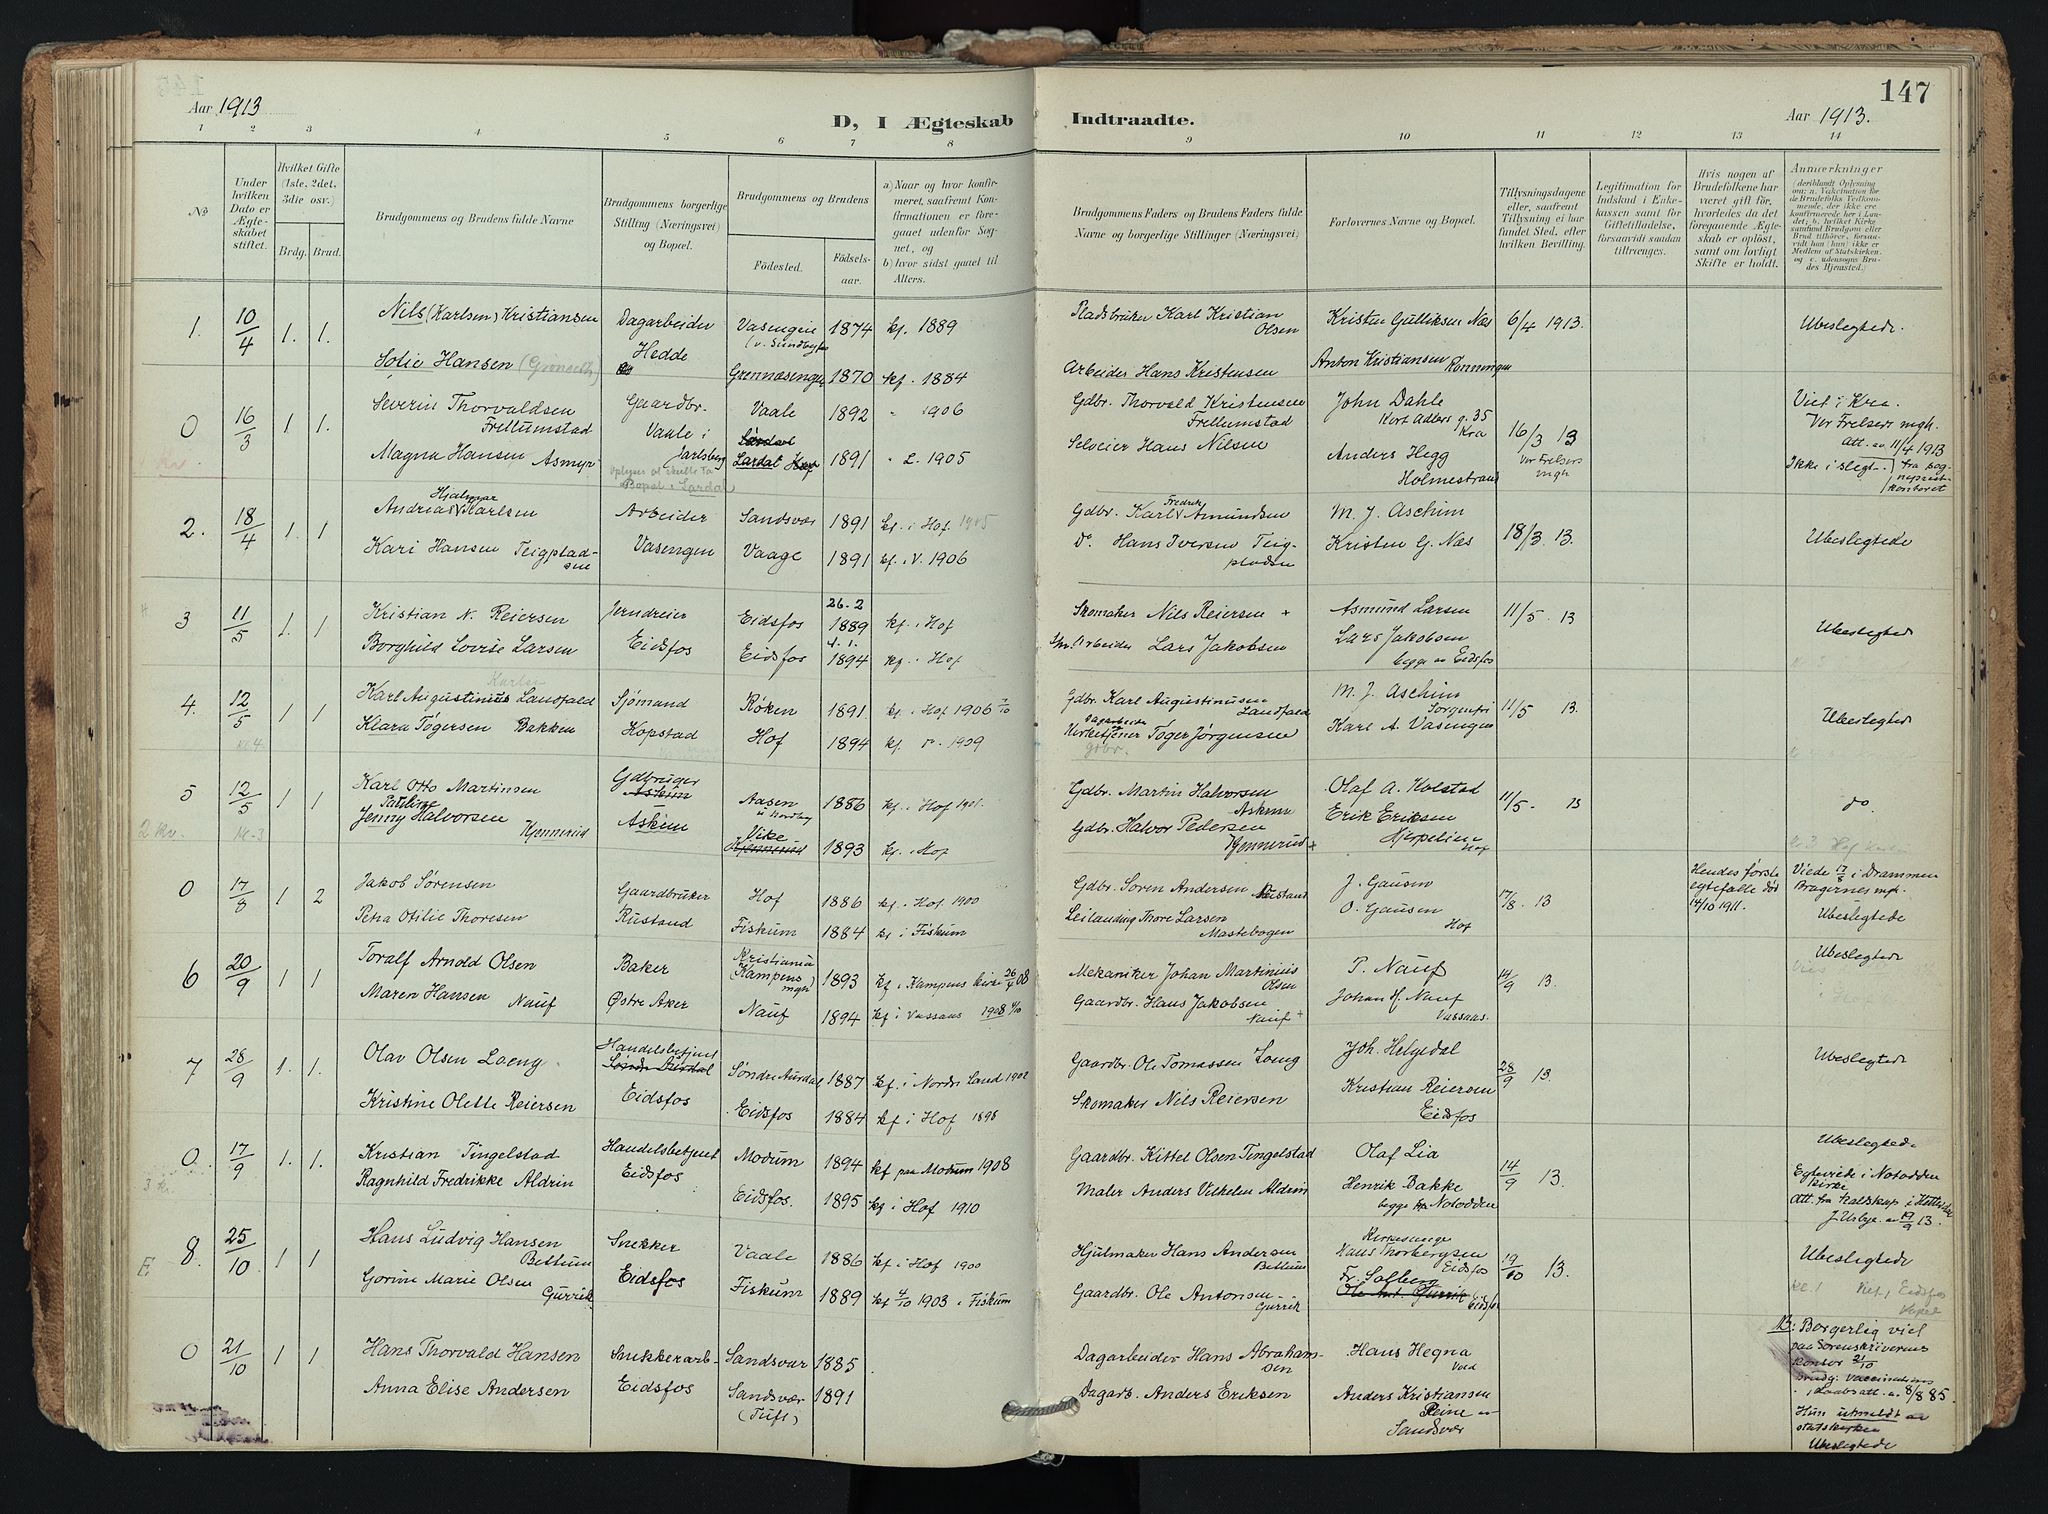 147
Aar 1913
D, I Ægteskab Indtraadte.
Aar 1913.
1 2 3 4 5 6 7 8 9 10 11 12 13 14
No
Under hvilken Dato er Ægteskabet stiftet.
Hvilket Gifte (1ste, 2det, 3die osv.)
Brdg. Brud.
Brudgommens og Brudens fulde Navne
Brudgommens borgerlige Stilling (Næringsvei) og Bopæl.
Brudgommens og Brudens
Fødested.
Fødselsaar.
a) Naar og hvor konfirmeret, saafremt Konfirmationen er foregaaet udenfor Sognet, og
b) hvor sidst gaaet til Alters.
Brudgommens Faders og Brudens Faders fulde Navne og borgerlige Stillinger (Næringsvei)
Forlovernes Navne og Bopæl.
Tillysningsdagene eller, saafremt Tillysning ei har fundet Sted, efter hvilken Bevilling.
Legitimation for Indskud i Enkekassen samt for Giftetilladelse, forsaavidt saadan tiltrænges.
Hvis nogen af Brudefolkene har været gift før, hvorledes da det foregaaende Ægteskab er opløst, samt om lovligt Skifte er holdt.
Anmerkninger
1. 10/4 1. 1. Nils (Karlsen) Kristiansen Dagarbeider Vasengeie 1874 kf. 1889 Pladsbruker Karl Kristian Olsen Kristen Gulliksen Næs 6/4 1913. Ubeslegtede.
Sofie Hansen Hedde Grennæsengen 1870 kf. 1884 Arbeider Hans Kristensen Anton Kristiansen Rønningen
0 16/3 1 1. Severin Thorvaldsen Frellumstad Gaardbr. Vaale 1892 " 1906 Gdbr. Thorvald Kristensen Frellumstad John Dahle Kort Adlers g. 35 Kra 16/3 13 Viet i Kra. Vor Frelsers mgh. Att. av 11/4 1913
Magna Hansen Asmyr Vaale i Jarlsberg Lardal 1891 " L. 1905 Selveier Hans Nilsen Anders Hegg Holmestrand Vor Frelsers mgh Ikke i slegt. fra sogneprestkontoret
Bopæl i Lardal
2. 18/4 1. 1. Andreas Hjalmar Karlsen Arbeider Sandsvær 1891 kf. i Hof Gdbr. Karl Fredrik Amundsen M. J. Aschim 18/3. 13. Ubeslegtede
Kari Hansen Teigpladsen Vasengen Vaage 1891 kf. i V. 1906 do. Hans Iversen Teigpladsen Kristen G. Næs
3 11/5 1. 1 Kristian N. Reiersen Jerndreier Eidsfos 26-2 1889 kf. i Hof Skomaker Nils Reiersen + Asmund Larsen 11/5. 13 Ubeslegtede
Borghild Lovise Larsen Eidsfos Eidsfos 4.1. 1894 kf. i Hof Arbeider Lars Jakobsen Lars Jakobsen begge av Eidsfos
4. 12/5 1 1 Karl Augustinus Landfald Sjømand Røken 1891. kf. i Hof 1906 Gdbr. Karl Augustinusen Landfald M. J. Aschim Sorgenfri 11/5 13. Ubeslegtede
Klara Tøgersen Bakken Kopstad Hof 1894 kf. do. 1909 Dagarbeider Kirketjener Tøger Jørgensen Karl A. Vasengen
5 12/5 1 1 Karl Otto Martinsen Gdbruger Aasen i Nordby 1886 kf. i Hof 1901. Gdbr. Martin Halvorsen Askim Olaf A. Holstad 11/5. 13 do
Jenny Halvorsen Kjennerud Askim Vike Kjennerud 1893 kf. i Hof Gdbr. Halvor Pedersen Kjennerud + Erik Eriksen Hof
2 kv.
0 17/8 1 2 Jakob Sørensen Gaardbruker Hof 1886 kf. i Hof 1900 Gdbr. Søren Andersen Rustand J. Gausen 17/8. 13 Hendes første egtefælle død 14/10 1911. Viede 17/8 i Drammen Bragernes mgh. Ubeslegtede
Petra Otilie Thoresen Rustand Fiskum 1884 kf. i Fiskum Leilænding Thore Larsen Mastebogen O. Gausen Hof
6 20/9 1 1 Toralf Arnold Olsen Baker Kristiania (Kampens mgh) 1893 kf. i Kampens kirke 26/4 08 Mekaniker Johan Martinius Olsen P. Nauf 14/9 13. Ubeslegtede
Maren Hansen Nauf Østre Aker Nauf 1894 kf i Vassaas 1908 4/10 Gaardbr. Hans Jakobsen Nauf + Johan H. Nauf Vassaas.
7 28/9 1. 1. Olav Olsen Loeng Handelsbetjent Søndre Aurdal Søndre Aurdal 1887 kf. i Nordr. Land 1902 Gaardbr. Ole Tomassen Loeng Joh. Helgedal 28/9 13. Ubeslegtede
Kristine Olette Reiersen Eidsfos Eidsfos 1884 kf i Hof 1898 Skomaker Nils Reiersen Kristian Reiersen Eidsfos
0. 17/9 1. 1. Kristian Tingelstad Handelsbetjent Modum 1894 kf paa Modum 1908 Gaardbr. Kittel Olsen Tingelstad Olaf Lia 14/9 13. Ubeslegtede
Ragnhild Fredrikke Aldrin Eidsfos Eidsfos. 1895 kf i Hof 1910 Maler Anders Vilhelm Aldrin Henrik Bakke begge Notodden Egteviede i Notodden kirke
3 kr.
8. 25/10 1 1 Hans Ludvig Hansen Bettum Snekker Vaale 1886 kf i Hof 1900 Hjulmaker Hans Andersen Bettum Kirkesanger Hans Thorbergsen Eidsfos 19/10 13. Ubeslegtede
Gorine Marie Olsen Gurrik Eidsfos Fiskum 1889 kf 4/10 1903 i Fiskum Gaardbr. Ole Antonsen Gurrik Fr. Solberg Eidsfos
0 21/10 1 1 Hans Thorvald Hansen Snikkerarb. Sandsvær 1885 Dagarbeider Hans Abrahamsen Hans Hegna B: Borgerlig viet paa Sorenskriverens kontor 21/10
Anna Elise Andersen Eidsfos Sandsvær (Tuft) 1891 Dagarb. Anders Eriksen Anders Kristiansen Reine Sandsvær
Hun utmeldt av statskirken
Ubeslegtede